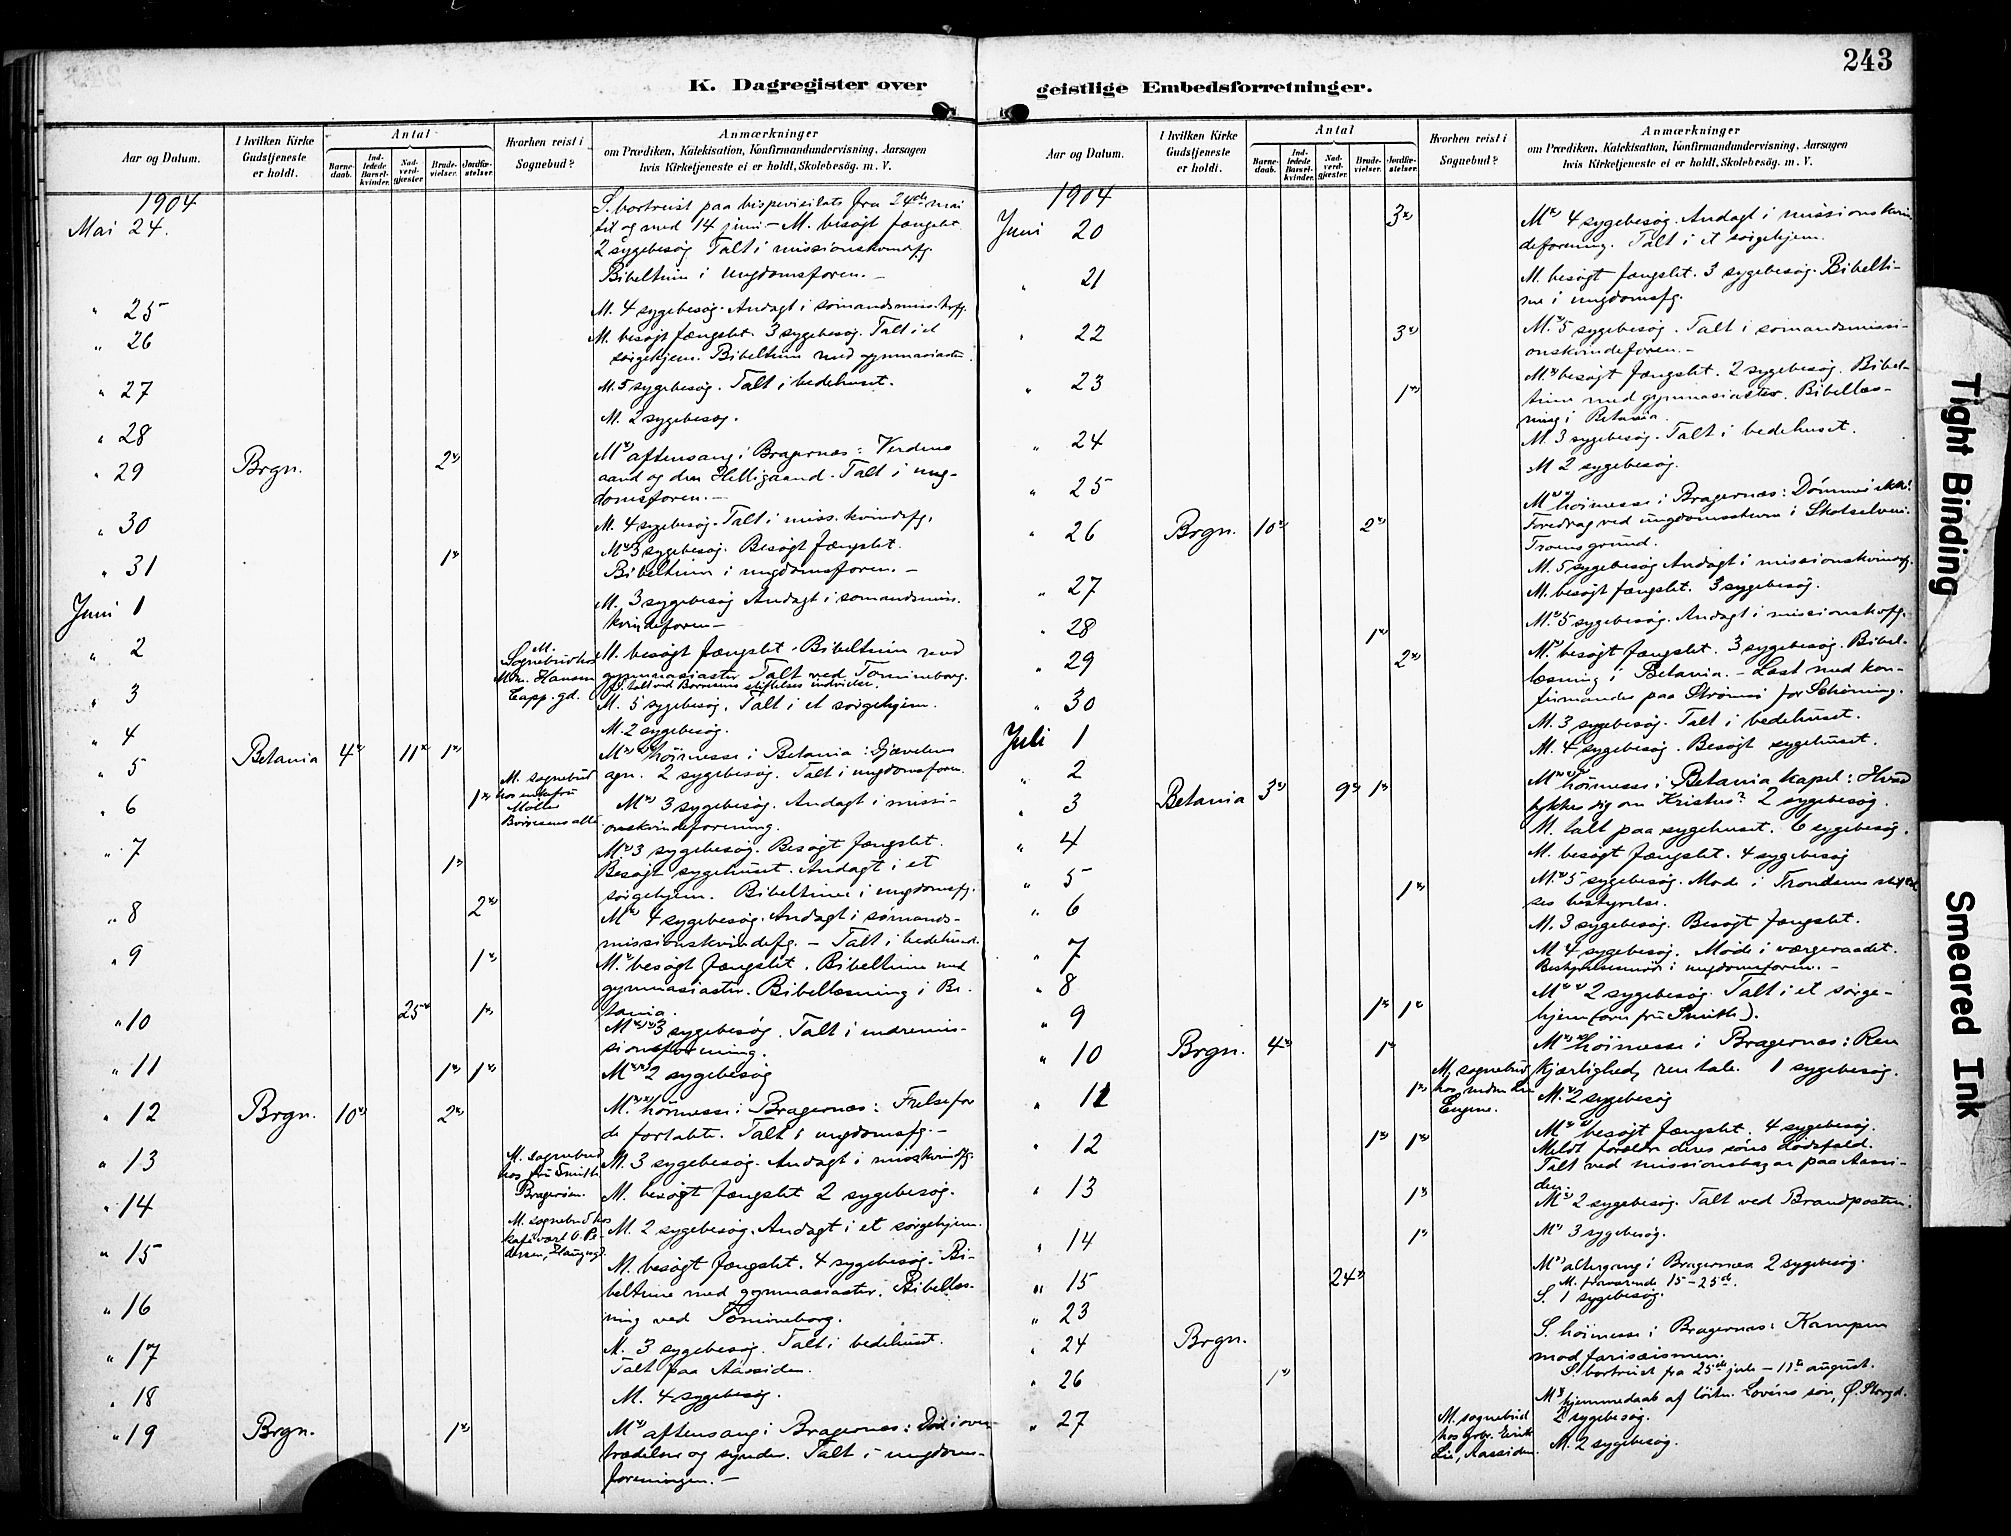 243
K. Dagregister over
geistlige Embedsforretninger.
Aar og Datum.
I hvilken Kirke
Gudstjeneste
er holdt.
Antal
Barne-
daab.
Ind-
ledede
Barsel-
kvinder.
Nad-
verd-
gjæster.
Brude-
vielser.
Jordfæ-
stelser.
Hvorhen reist i
Sognebud?
Anmærkninger
om Prædiken, Katekisation, Konfirmandundervisning, Aarsagen
hvis Kirketjeneste ei er holdt, Skolebesøg. m. V.
1904
Mai 24.
S. bortreist paa bispevisitats fra 24de mai
til og med 14 juni - M. besøgt fængslet.
2 sygebesøg Talt i missionskvindefg.
Bibeltime i ungdomsforen. -
" 25
M. 4 sygebesøg. Andagt i sømandsmiss.kvfg.
" 26
M. besøgt fængslet. 3 sygebesøg. Talt i et
sørgehjem. Bibeltime med gymnasiaster.
" 27
M. 5 sygebesøg. Talt i bedehuset.
" 28
M. 2 sygebesøg.
" 29 Brgn. 2
M aftensang i Bragernæs: Verdens
aand og den Helligaand. Talt i ung-
domsforen. -
" 30
M. 4 sygebesøg. Talt i miss. kvindefg.
" 31 1
M 3 sygebesøg. Besøgt fængslet.
Bibeltime i ungdomsforen. -
Juni 1
M. 3 sygebesøg Andagt i sømandsmiss.
kvindeforen -
" 2
M.
Sognebud hos
Hansen
Capp. gd.
M. besøgt fængslet. Bibeltime med
gymnasiaster. Talt ved Tømineborg.
S. talt ved Børresens stiftelses indvielse.
" 3
M. 5 sygebesøg. Talt i et sørgehjem.
" 4
M. 2 sygebesøg.
" 5 Betania 4 11 1
M høimesse i Betania: Djævelens
agn. 2 sygebesøg. Talt i ungdomsforen.
" 6 1
M. sognebud
hos enkefru
Møller
Børresens allé
M 3 sygebesøg. Andagt i missi-
onskvindeforening.
" 7 1
M 3 sygebesøg. Besøgt fængslet.
Besøgt sygehuset. Andagt i et
sørgehjem. Bibeltime i ungdomsfg.
" 8 2
M 4 sygebesøg. Andagt i sømands-
missionskvindefg. - Talt i bedehuset.
" 9 1
M. besøgt fængslet. Bibeltime med
gymnasiaster. Bibellæsning i Be-
tania.
" 10 25 1
M 3 sygebesøg. Talt i indremis-
sionsforening.
" 11 1 1
M 2 sygebesøg
" 12 Brgn. 10 2
M. høimesse i Bragernæs: Frelse for
de fortabte. Talt i ungdomsfg. -
" 13
M. sognebud
hos fru Smith
Bragerøen.
M. 3 sygebesøg. Andagt i misskvindfg.
" 14
M. besøgt fængslet 2 sygebesøg.
" 15
M. sognebud hos
kafévært O. Pe-
dersen, Haugesgd.
M. 2 sygebesøg. Andagt i et sørgehjem.
" 16
M. besøgt fængslet. 4 sygebesøg. Bi-
beltime med gymnasiaster. Bibellæs-
ning ved Tømineborg.
" 17
M. 3 sygebesøg. Talt i bedehuset.
Talt paa Aassiden.
" 18
M. 4 sygebesøg.
" 19 Brgn. 1
M aftensang i Bragernæs: Død i over-
trædelser og synder. Talt i ungdoms-
foreningen. -
Aar og Datum.
I hvilken Kirke
Gudstjeneste
er holdt.
Antal
Barne-
daab.
Ind-
ledede
Barsel-
kvinder.
Nad-
verd-
gjæster.
Brude-
vielser.
Jordfæ-
stelser.
Hvorhen reist i
Sognebud?
Anmærkninger
om Prædiken, Katekisation, Konfirmandundervisning, Aarsagen
hvis Kirketjeneste ei er holdt, Skolebesøg. m. V.
1904
Juni 20 3
M 4 sygebesøg. Andagt i missionskvin-
deforening. Talt i et sørgehjem.
" 21
M. besøgt fængslet. 3 sygebesøg. Bibelti-
me i ungdomsfg.
" 22 3
M. 5 sygebesøg. Talt i sømandsmissi-
onskvindeforen. -
" 23 1
M. besøgt fængslet. 2 sygebesøg. Bibel-
time med gymnasiaster. Bibellæs-
ning i Betania.
" 24
M. 3 sygebesøg. Talt i bedehuset.
" 25
M 2 sygebesøg.
" 26 Brgn. 10 2
M høimesse i Bragernæs:
Foredrag ved ungdomsstevne i Skotselven:
Troens grund.
" 27
M. 5 sygebesøg Andagt i missionskvindefg.
" 28 1
M. besøgt fængslet. 3 sygebesøg.
" 29 2
M. 5 sygebesøg. Andagt i missionskvfg.
" 30
M. besøgt fængslet. 3 sygebesøg. Bibel-
læsning i Betania. - Læst med kon-
firmander paa Strømsø for Schiøning.
Juli 1
M. 3 sygebesøg. Talt i bedehuset.
" 2
M. 4 sygebesøg. Besøgt sygehuset.
" 3 Betania 3 9 1
M høimesse i Betania kapel: Hvad
tykkes dig om Kristus? 2 sygebesøg.
" 4
M. talt paa sygehuset. 6 sygebesøg.
" 5 1
M. besøgt fængslet. 4 sygebesøg
" 6
M. 5 sygebesøg. Møde i
ses bestyrelse.
" 7
M. 3 sygebesøg. Besøgt fængslet.
" 8
M 4 sygebesøg. Møde i værgeraadet.
Bestyrelsesmøde i ungdomsforen. -
" 9 1 1
M 2 sygebesøg. Talt i et sørge-
hjem (over fru Smith).
" 10 Brgn. 4 1
M høimesse i Bragernæs: Ren
kjærlighed, ren tale. 1 sygebesøg.
" 11 1
M. sognebud
hos
Engene.
M. 2 sygebesøg
" 12 1 1
M besøgt fængslet. 4 sygebesøg.
Meldt forældre deres søns dødsfald.
Talt ved missionsbazar paa Aassi-
den.
" 13 1
M 2 sygebesøg. Talt ved Brandposten.
" 14 1
M 3 sygebesøg.
" 15 24
M altergang i Bragernæs 2 sygebesøg.
M. fraværende 15 - 25de.
" 23
S. 1 sygebesøg.
" 24 Brgn.
S. høimesse i Bragernæs: Kampen
mod farisæismen.
S. bortreist fra 25de juli - 11te august.
" 26 1
M hjemmedaab af løitn. Lovéns søn, Ø. Storgd.
2 sygebesøg.
" 27
M. sognebud
hos grbr. Erik
Lie, Aassiden.
M. 2 sygebesøg.
Tight Binding
Smeared Ink